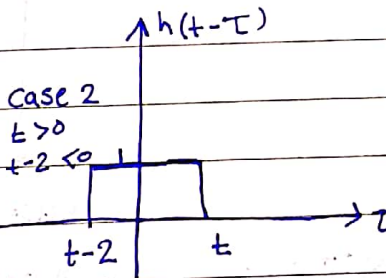 h(t-τ)
case 2
t>0
t-2<0
1
τ
t-2
t